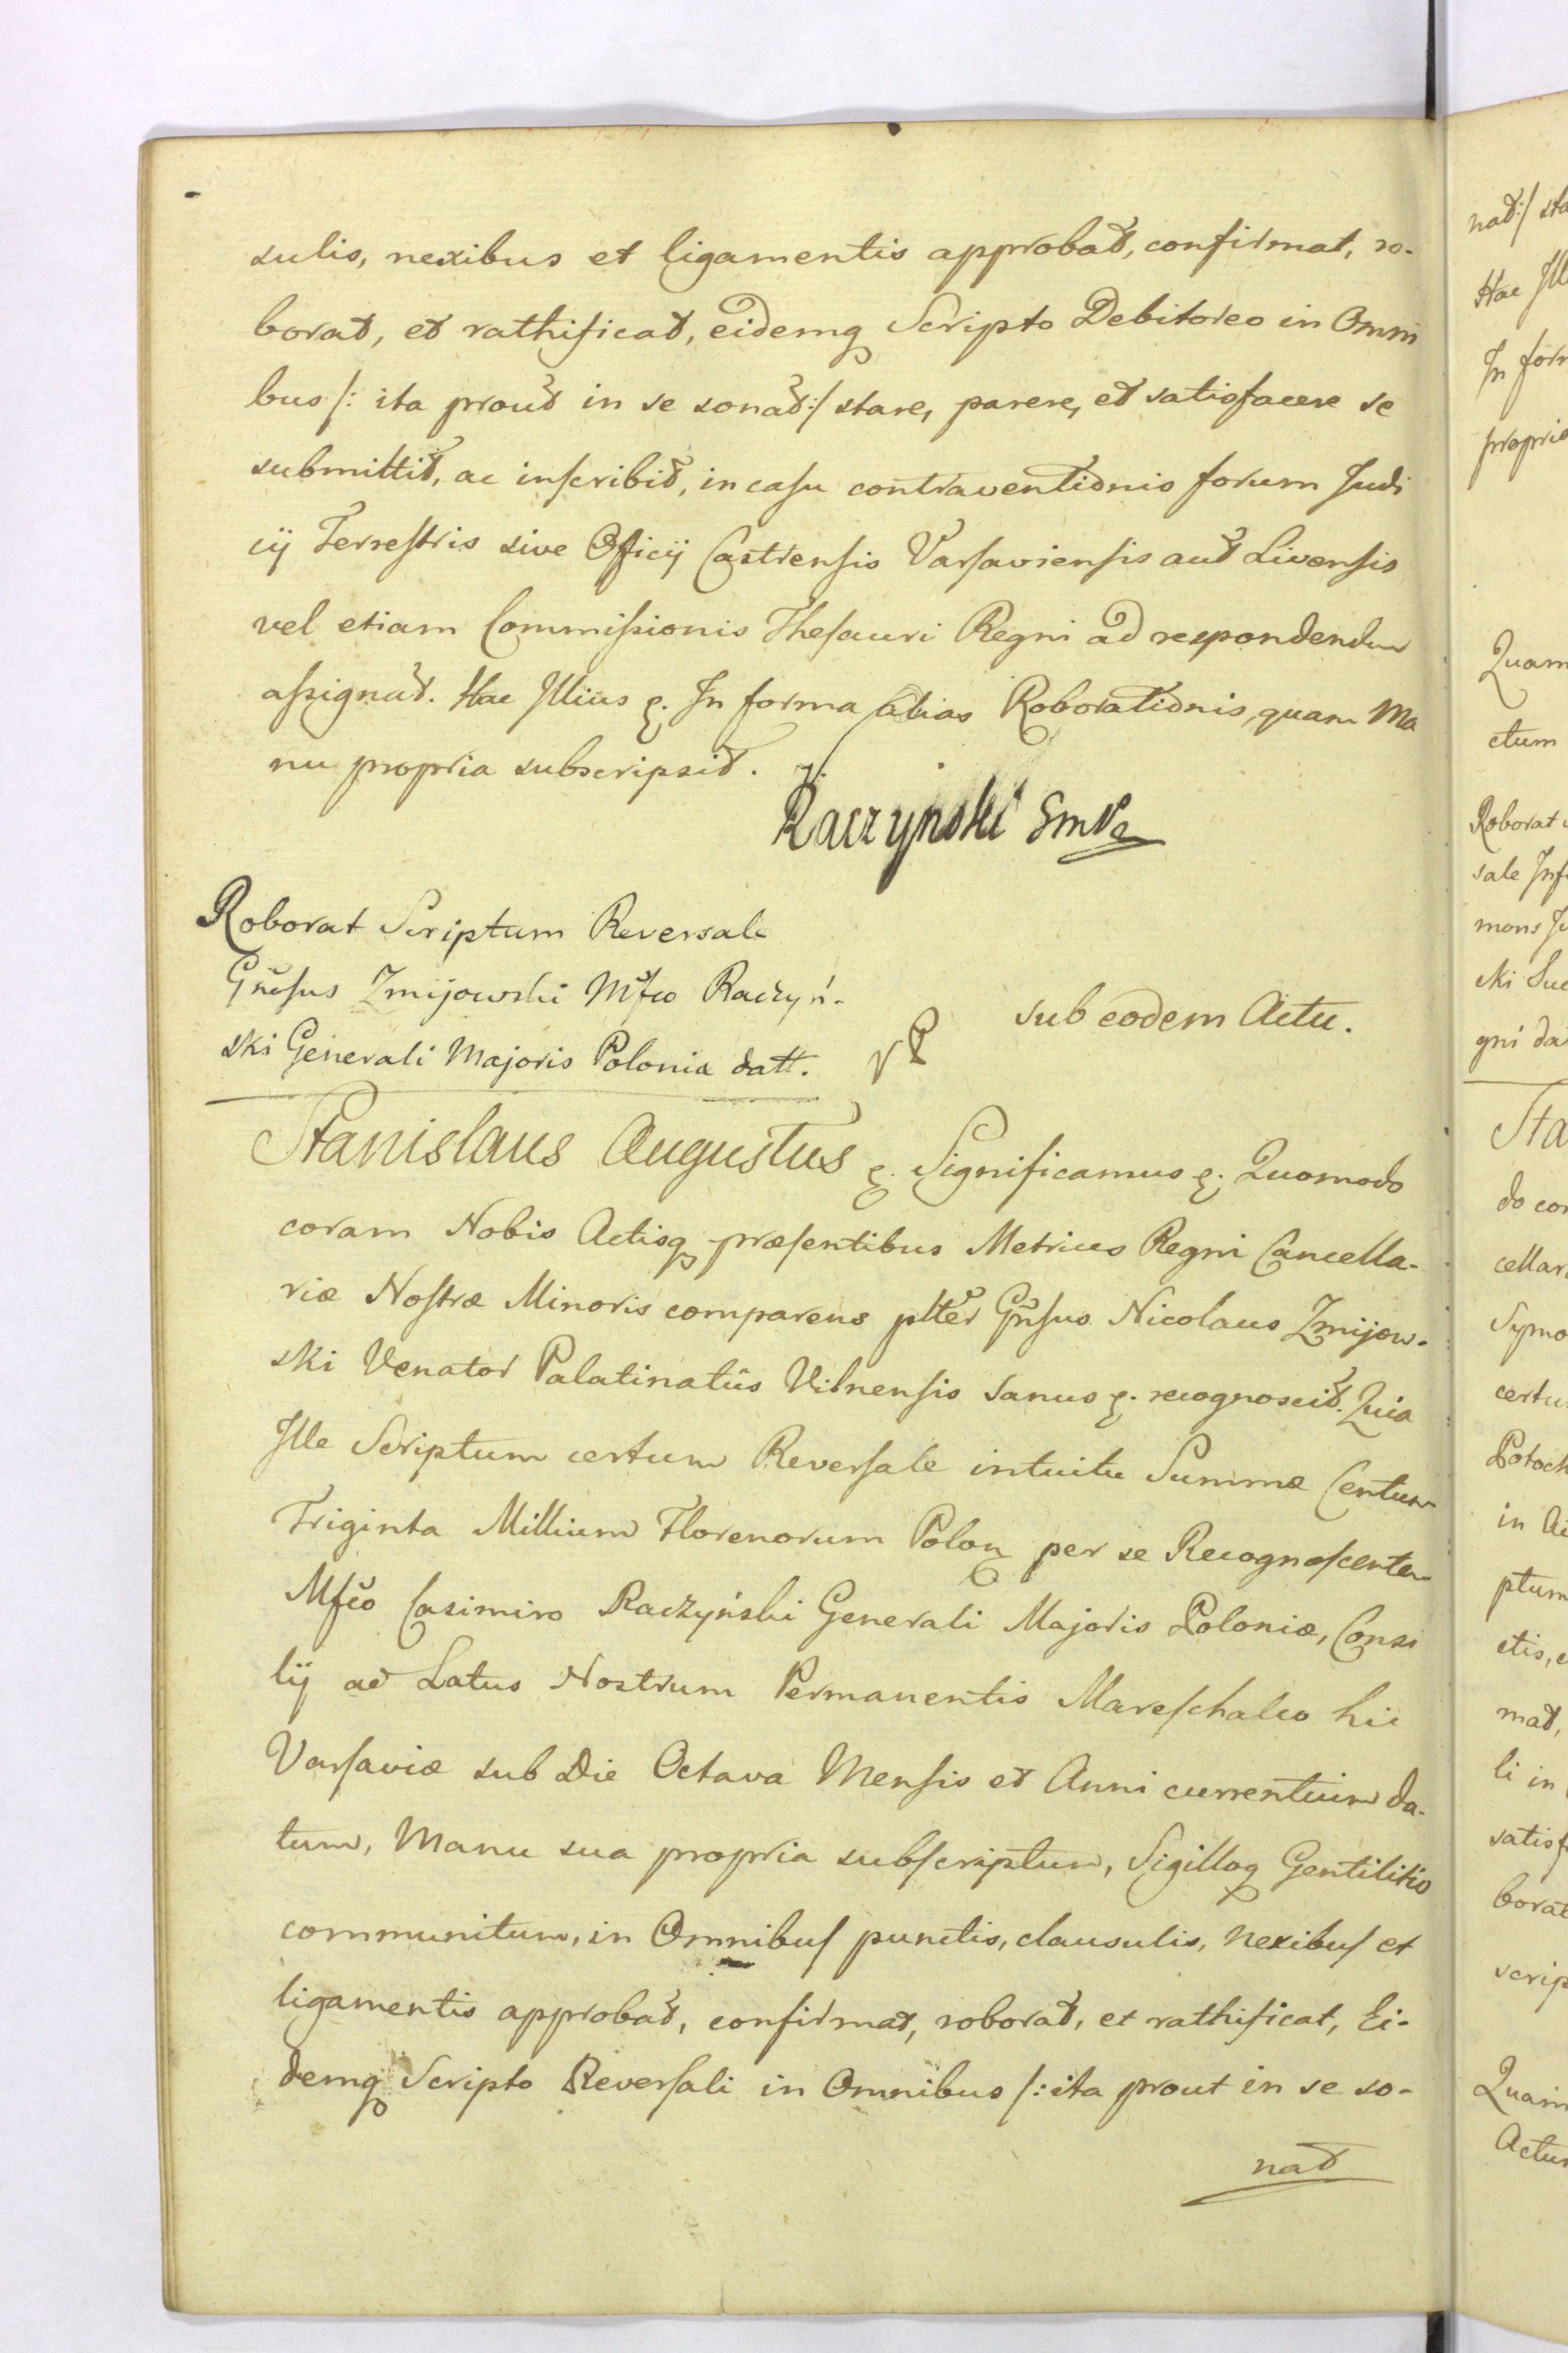 sulis, nexibus et ligamentis approbat, confirmat, ro-
borat, et rathificat, eidemq Scripto Debitoreo in Omni
bus /: ita prout in se sonat :/ stare, parere, et satisfacere se
submittit, ac inscribit, in casu contraventionis forum Judi
cij Terrestris sive Officij Castrensis Varsaviensis aut Livensis
vel etiam Commissionis Thesauri Regni ad respondendum
assignat. Hac Illius &. In forma alias Roborationis, quam Ma
nu propria subscripsit.
Raczyński GmP
Roborat Scriptum Reversale
Gnosus Zmijowski Mfco Raczyń-
ski Generali Majoris Polonia datt.
sub eodem Actu.
Stanislaus Augustus &. Significamus &. Quomodo
coram Nobis Actisq præsentibus Metrices Regni Cancella-
riæ Nostræ Minoris comparens pltter Gnsus Nicolaus Zmijow-
ski Venator Palatinatûs Vilnensis sanus &. recognoscit. Quia
Ille Scriptum certum Reversale intuitu Summæ Centum
Triginta Millium Florenorum Polon per se Recognoscentem
Mfco Casimiro Raczyński Generali Majoris Poloniæ, Consi
lij ad Latus Nostrum Permanentis Mareschalco hic
Varsaviæ sub Die Octava Mensis et Anni currentium da-
tum, Manu sua propria subscriptum, Sigilloq Gentilitio
communitum, in Omnibus punctis, clausulis, nexibus et
ligamentis approbat, confirmat, roborat, et rathificat, Ei-
demq Scripto Reversali in Omnibus /: ita prout in se so-
nat
nat :/ sta
Hac Ill
In for
propri
Quam
ctum
Roborat
sale Inf
mons
ski Suc
gni da
Sta
do cor
cellar
Symo
certu
Potock
in
ptum
ctis,
mat,
li in
satisf
borat
scrip
Quam
Actu